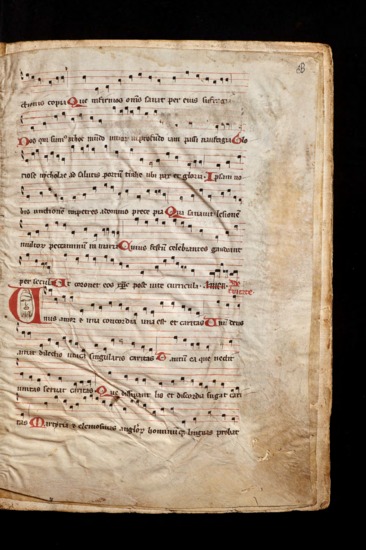 ctionis copia Que infirmos om̄s sanat per eius suffragia
Nos qui sum' in hoc mūdo uitior in profūdo iam passi naufragia Glo
riose nicholae ad salutis portū trahe ubi pax et gloria Ipsam no
bis unctionē impetres ad dominū prece pia Qua sanauit lesionē
multor peccaminū in maria Huius festū celebrantes gaudeant
per secula Et coronet eos xp̄c post uite curricula Amen
Unus amor et una concordia una est et caritas Qui deus
amat dilectio unica singularis caritas
unitas seruat caritas Que disiungit lis et discordia fugat cari
tas Martiria et elemosinas anglor hominūq; linguas probat